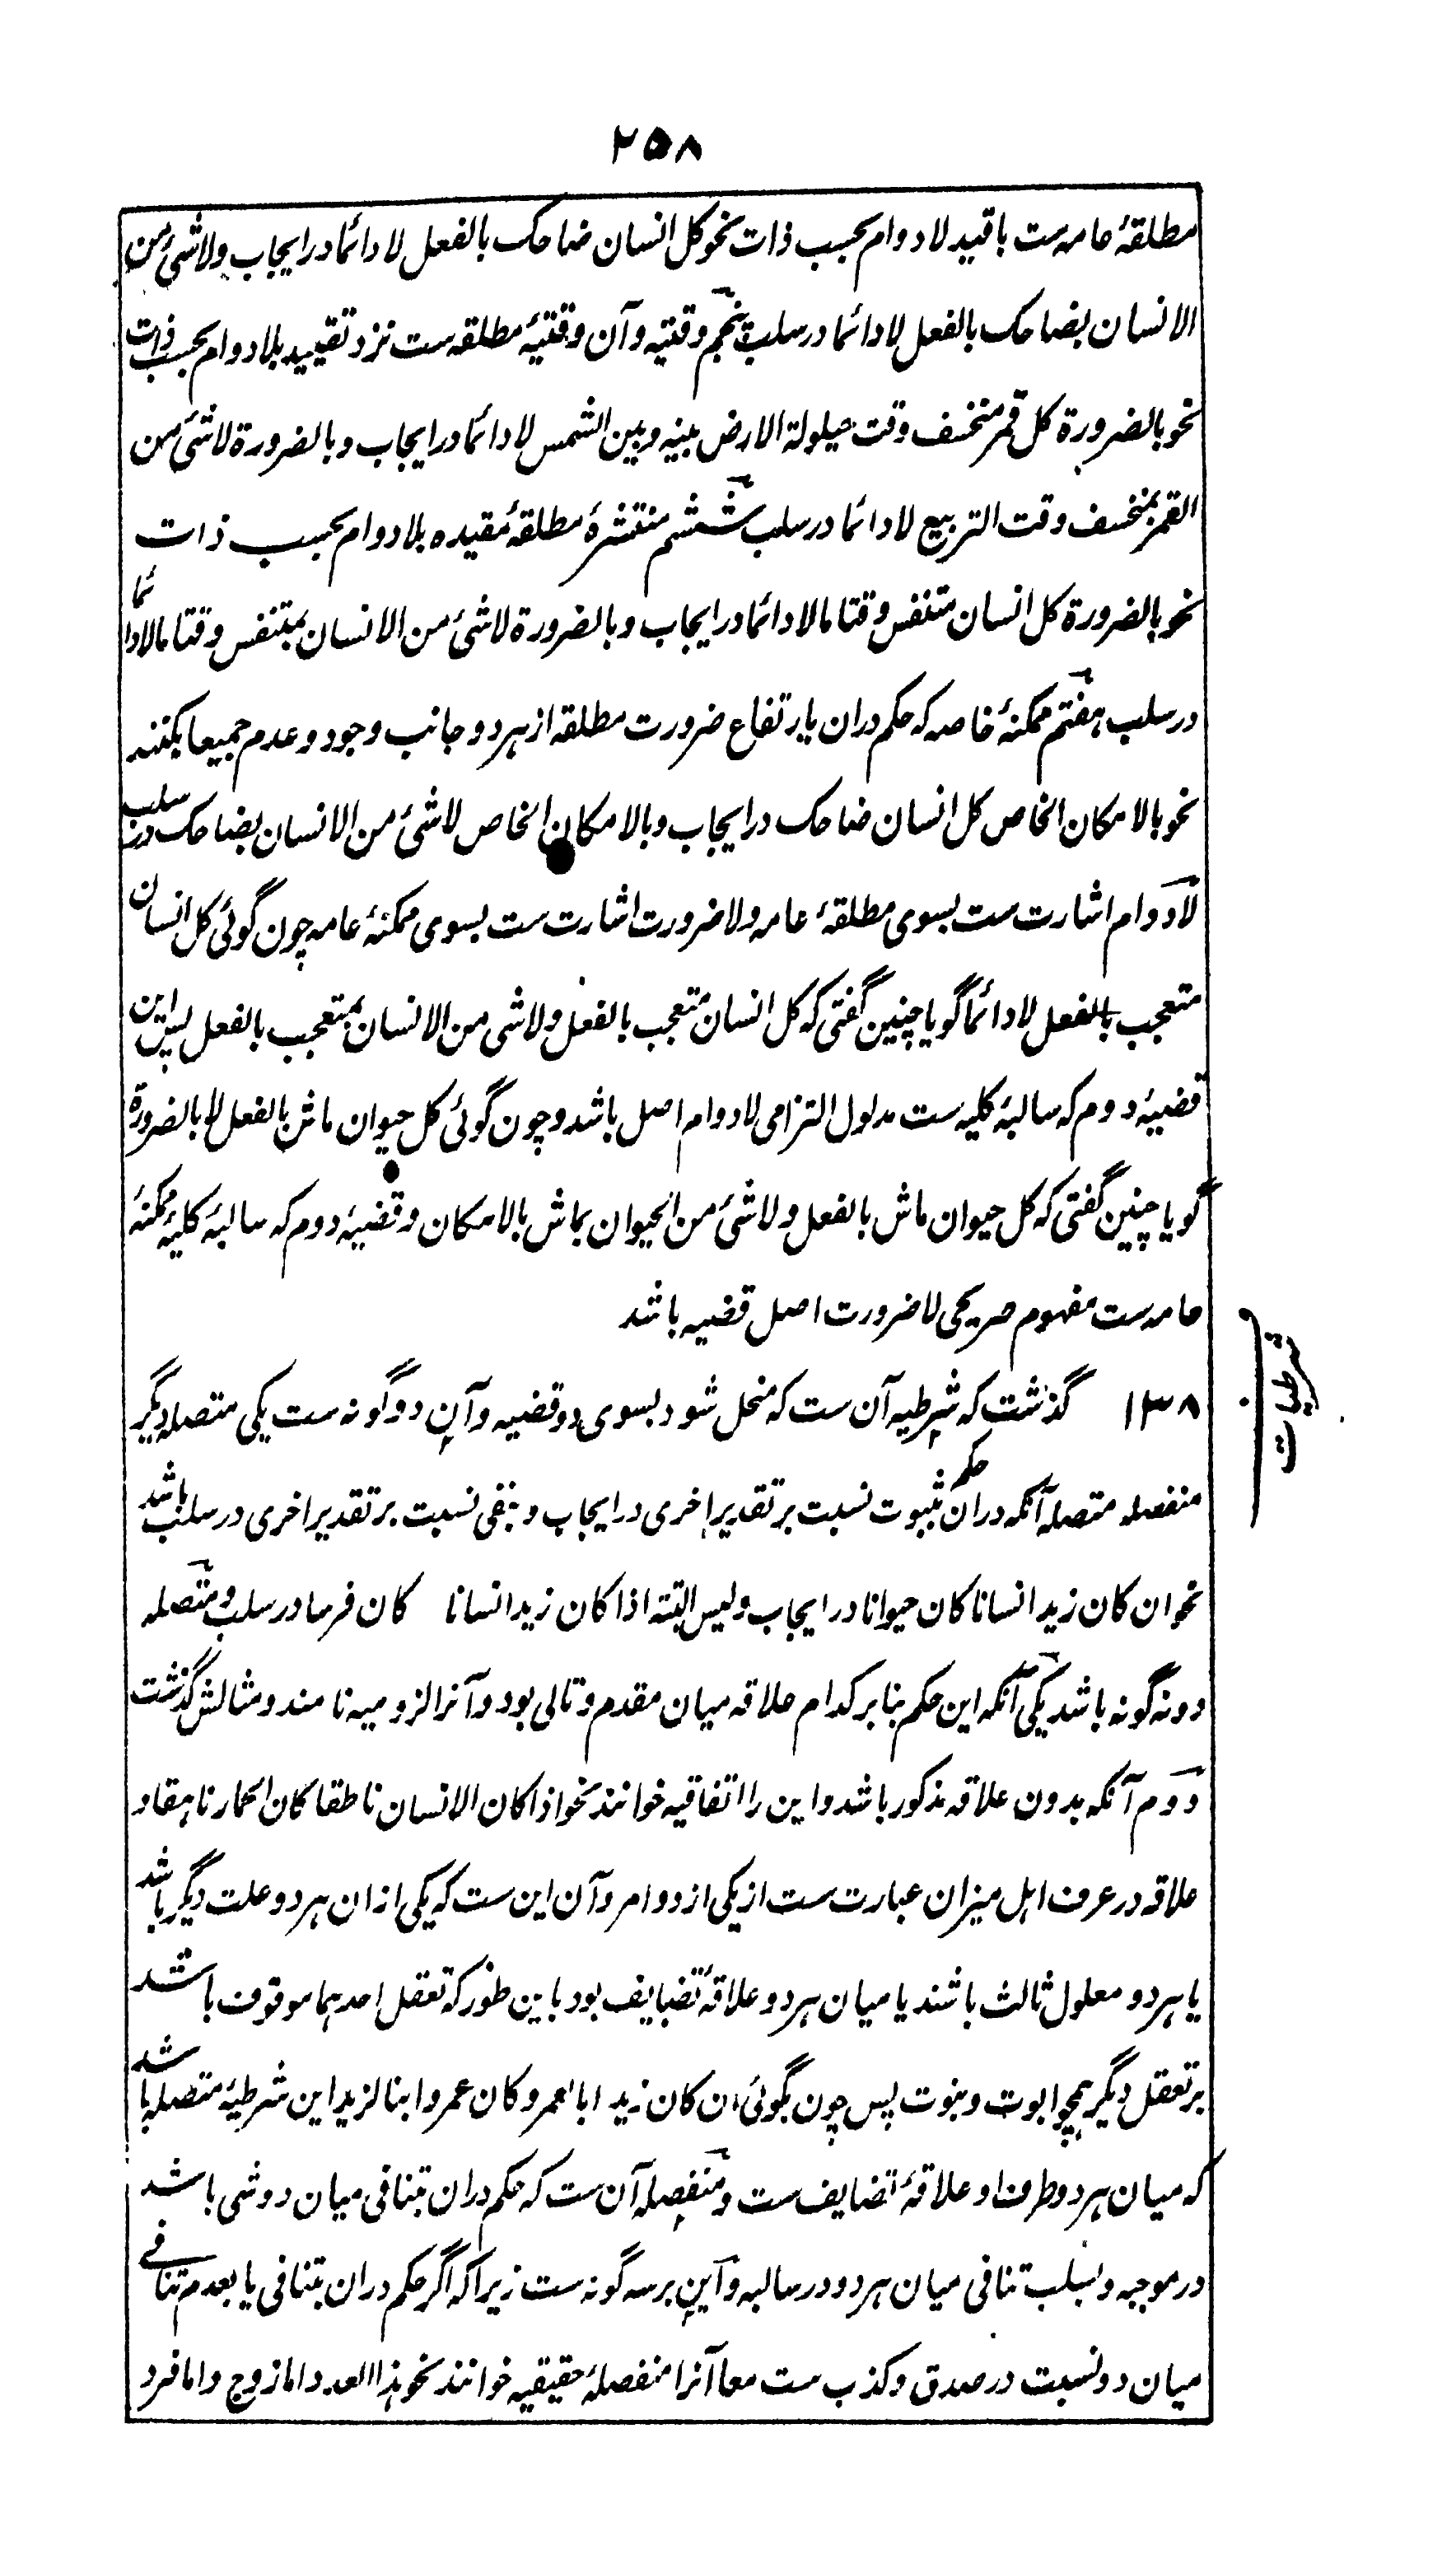 ۲۵۸
مطلقهٔ عامه ست باقید لادوام بحسب ذات نحو کل انسان ضاحک بالفعل لا دائما در ایجاب و لا شیٔ من
الانسان بضاحک بالفعل لا دائما در سلب پنجم وقتیه و آن وقتیهٔ مطلقه ست نزد تقیید بلادوام بحسب ذات
نحو بالضرورة کل قمر منخسف وقت حیلولة الارض بینه و بین الشمس لا دائما در ایجاب و بالضرورة لا شیٔ من
القمر بمنخسف وقت التربیع لا دائما در سلب ششم منتشرهٔ مطلقهٔ مقیده بلادوام بحسب ذات
نحو بالضرورة کل انسان متنفس وقتا ما لا دائما در ایجاب و بالضرورة لا شیٔ من الانسان بمتنفس وقتا ما لا دائما
در سلب هفتم ممکنهٔ خاصه که حکم دران بارتفاع ضرورت مطلقه از هر دو جانب وجود و عدم جمیعا بکنند
نحو بالامکان الخاص کل انسان ضاحک در ایجاب و بالامکان الخاص لا شیٔ من الانسان بضاحک در سلب
لادوام اشارت ست بسوی مطلقهٔ عامه و لاضرورت اشارت ست بسوی ممکنهٔ عامه چون گوئی کل انسان
متعجب بالفعل لا دائما گویا چنین گفتی که کل انسان متعجب بالفعل و لا شی من الانسان بمتعجب بالفعل پس این
قضیهٔ دوم که سالبهٔ کلیه ست مدلول التزامی لادوام اصل باشد و چون گوئی کل حیوان ماش بالفعل لا بالضرورة
گویا چنین گفتی که کل حیوان ماش بالفعل و لا شیٔ من الحیوان بماش بالامکان و قضیهٔ دوم که سالبهٔ کلیهٔ ممکنهٔ
عامه ست مفهوم صریحی لاضرورت اصل قضیه باشد
شرطیات
۱۳۸ گذشت که شرطیه آن ست که منحل شود بسوی دو قضیه و آن دو گونه ست یکی متصله دیگر
منفصله متصله آنکه دران حکم بثبوت نسبت بر تقدیر اخری در ایجاب و بنفی نسبت بر تقدیر اخری در سلب باشد
نحو ان کان زید انسانا کان حیوانا در ایجاب و لیس البتة اذا کان زید انسانا کان فرسا در سلب و متصله
دو نه گونه باشد یکی آنکه این حکم بنا بر کدام علاقه میان مقدم و تالی بود و آنرا لزومیه نامند و مثالش گذشت
دوم آنکه بدون علاقه مذکور باشد و این را اتفاقیه خوانند نحو اذا کان الانسان ناطقا کان الحمار ناهقا و
علاقه در عرف اهل میزان عبارت ست از یکی از دو امر و آن این ست که یکی ازان هر دو علت دیگر باشد
یا هر دو معلول ثالث باشند یا میان هر دو علاقهٔ تضایف بود باین طور که تعقل احدهما موقوف باشد
بر تعقل دیگر همچو ابوت و بنوت پس چون بگوئی ان کان زید ابا لعمرو کان عمرو ابنا لزید این شرطیهٔ متصله باشد
که میان هر دو طرف او علاقهٔ تضایف ست و منفصله آن ست که حکم دران بتنافی میان دو شی باشد
در موجبه و بسلب تنافی میان هر دو در سالبه و این بر سه گونه ست زیرا که اگر حکم دران بتنافی یا بعدم تنافی
میان دو نسبت در صدق و کذب ست معا آنرا منفصلهٔ حقیقیه خوانند نحو هذا العدد اما زوج و اما فرد